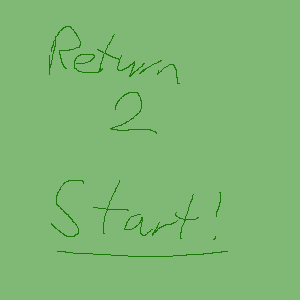 Return
2
Start!